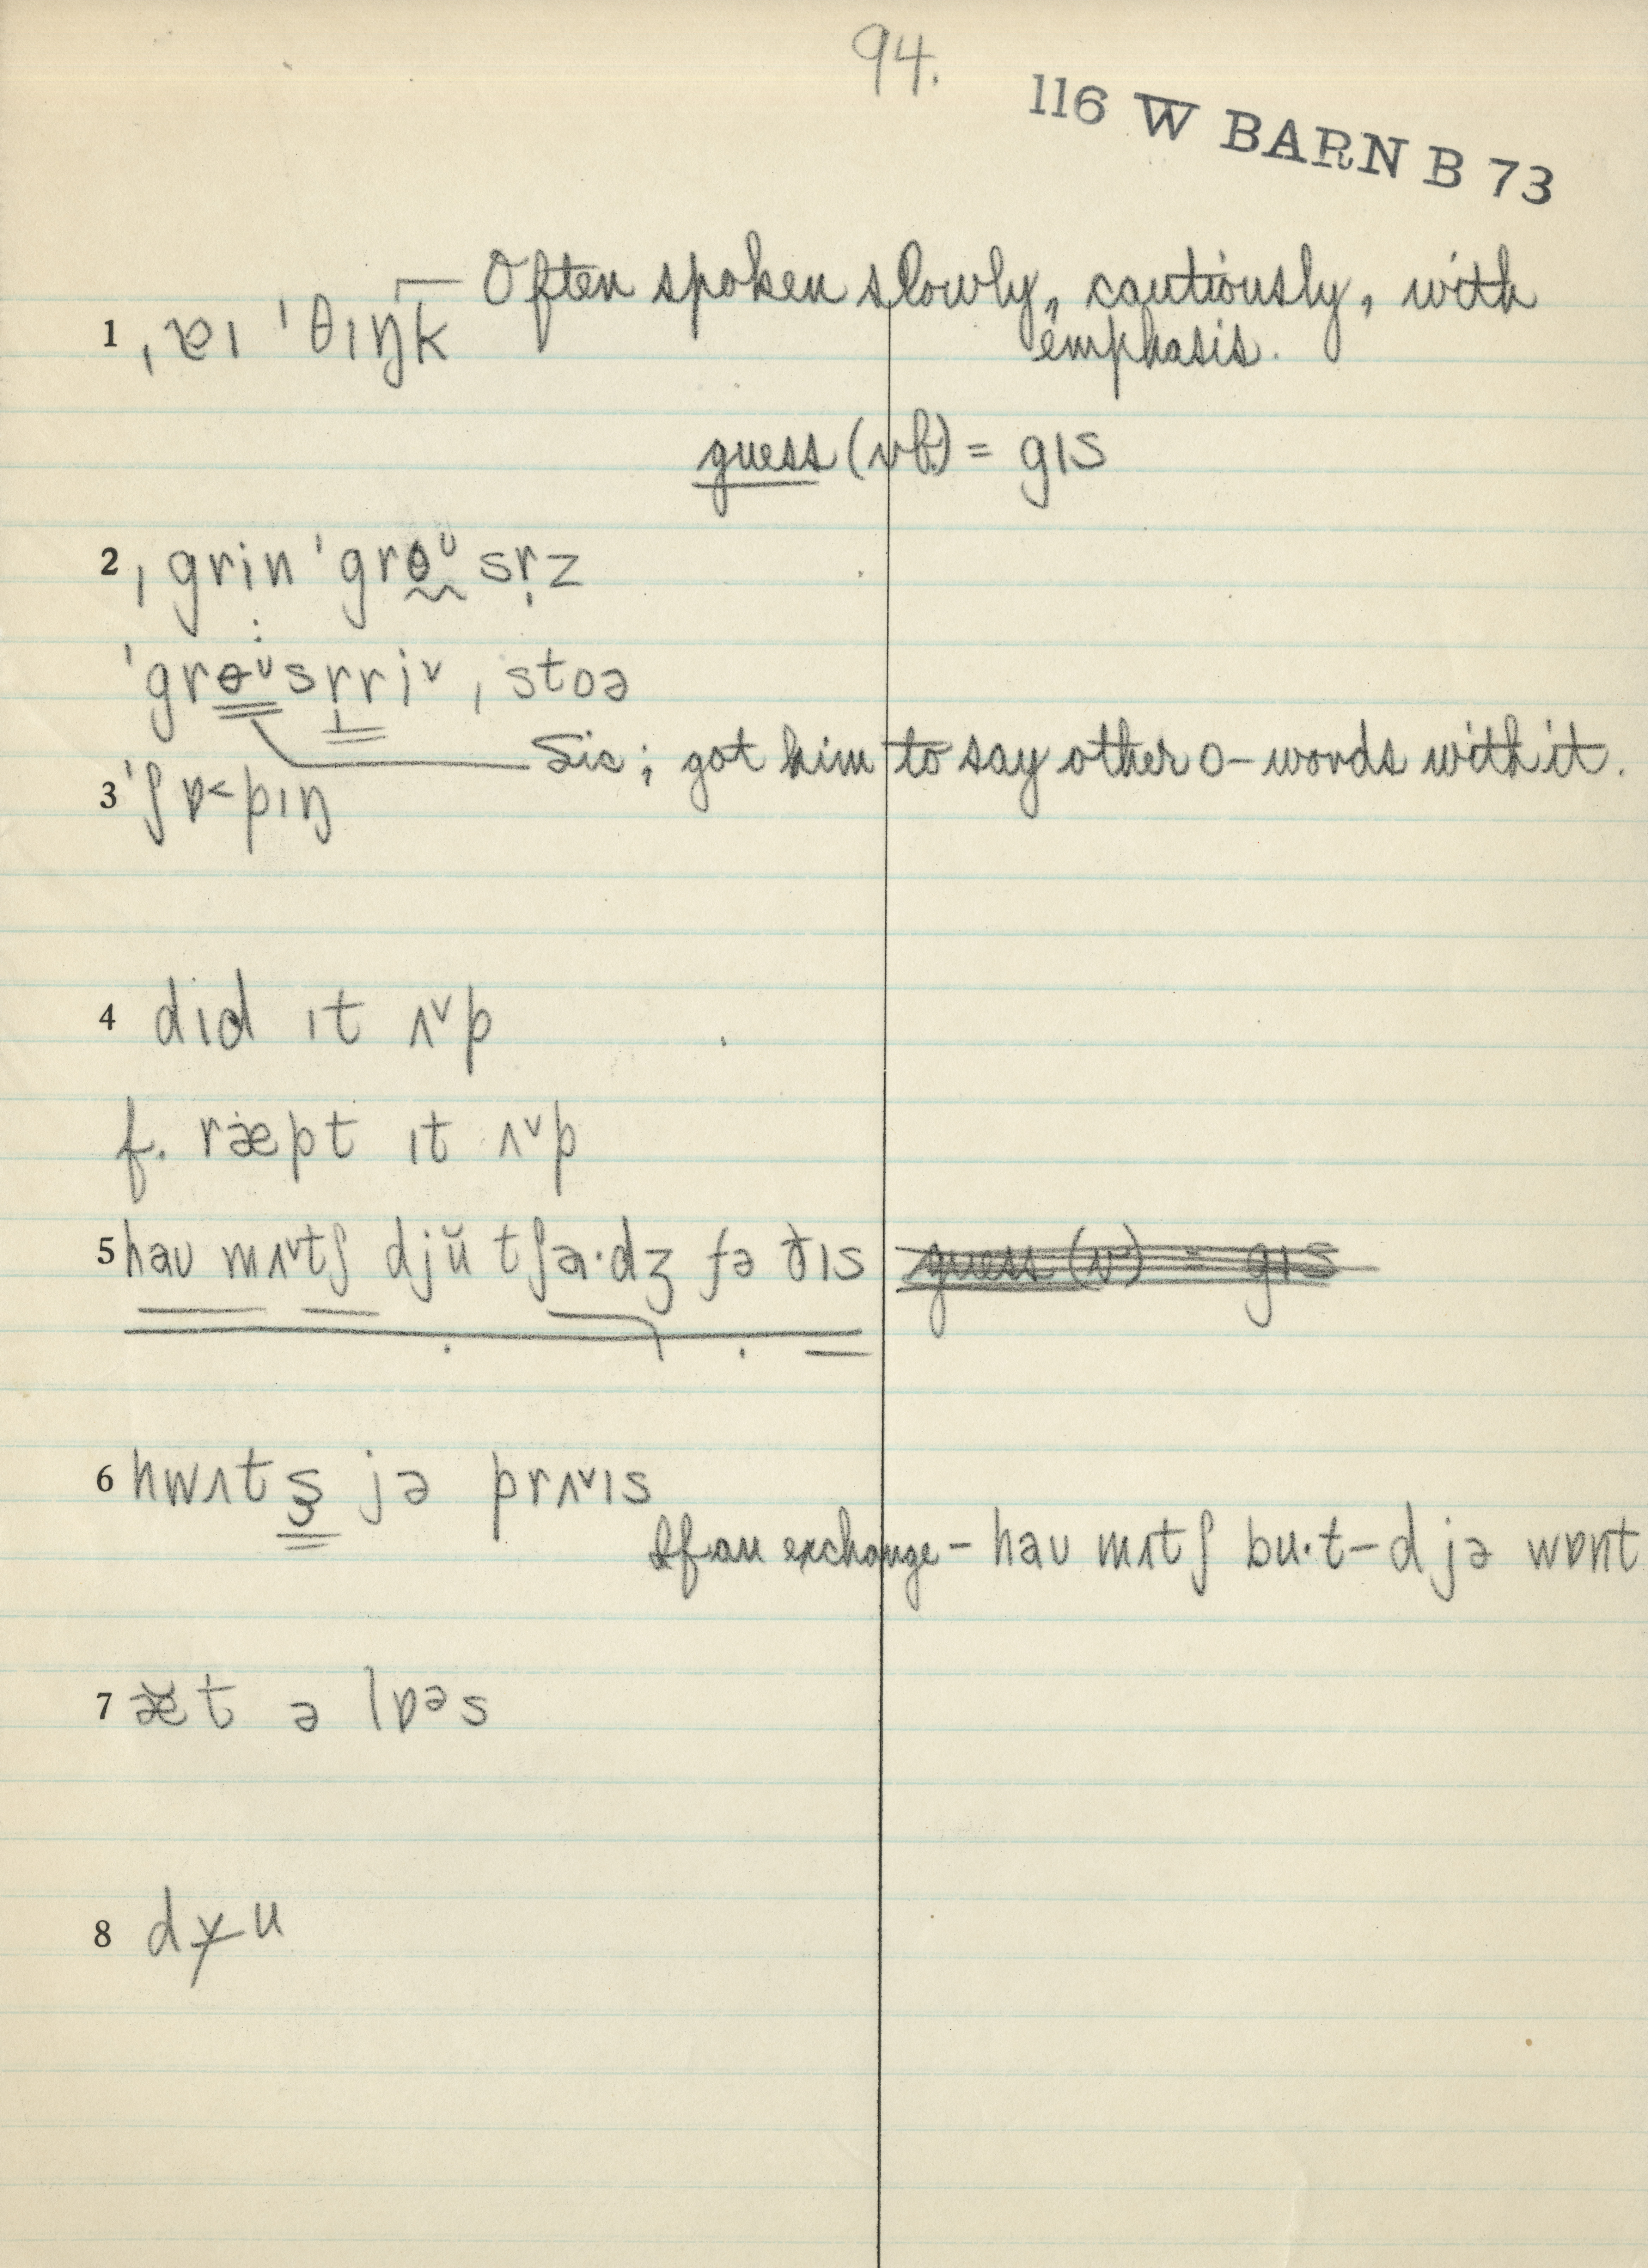 94.
116 W BARN B 73
— Often spoken slowly, cautiously, with
1 ˌɐɪ ˈθɪŋk
emphasis.
guess (vb.) = gɪs
2 ˌgrin ˈgrɵᶷsr̩z
ˈgrɵᶷsr̩ri˅ ˌstoə
Sic; got him to say other o-words with it.
3 ˈʃɒ˂pɪŋ
4 dɪd ɪt ʌ˅p
f. ræpt ɪt ʌ˅p
5 haʊ mʌ˅tʃ djŭ tʃa·dʒ fə ðɪs guess (v) = gɪs
6 hwʌts̬ jə prʌ˅ɪs
If an exchange – haʊ mʌtʃ bu·t–d jə wɒnt
7 æt ə lɒᵊs
8 dɪu